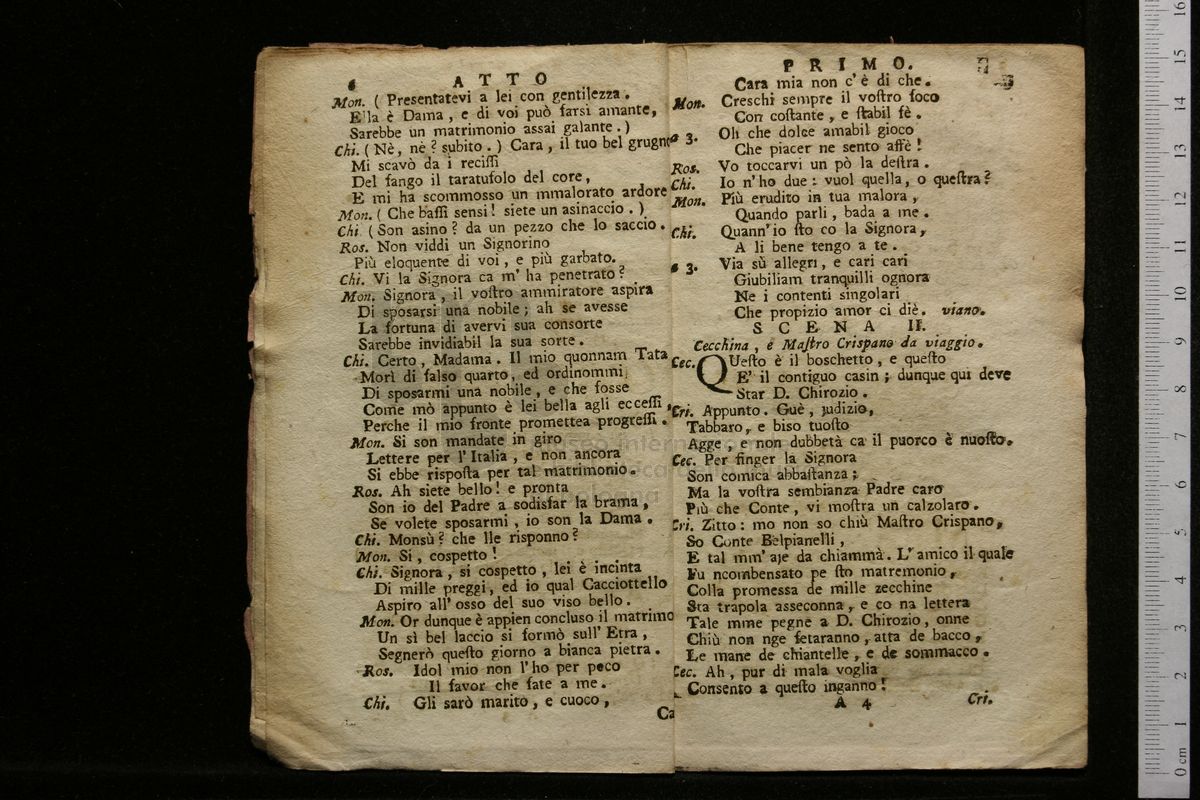 6 ATTO
Mon. ( Presentatevi a lei con gentilezza.
Ella è Dama, e di voi può farsi amante,
Sarebbe un matrimonio assai galante. )
Chi. ( Nè, nè? subito. ) Cara, il tuo bel grugno
Mi scavò da i recissi
Del fango il taratufolo del core,
E mi ha scommosso un mmalorato ardore
Mon. ( Che bassi sensi! siete un asinaccio. )
Chi. ( Son asino? da un pezzo che lo saccio.
Ros. Non viddi un Signorino
Più eloquente di voi, e più garbato.
Chi. Vi la Signora ca m' ha penetrato?
Mon. Signora, il vostro ammiratore aspira
Di sposarsi una nobile; ah se avesse
La fortuna di avervi sua consorte
Sarebbe invidiabil la sua sorte.
Chi. Certo, Madama. Il mio quonnam Tata
Morì di falso quarto, ed ordinommi
Di sposarmi una nobile, e che fosse
Come mò appunto è lei bella agli eccessi,
Perche il mio fronte promettea progressi.
Mon. Si son mandate in giro
Lettere per l' Italia, e non ancora
Si ebbe risposta per tal matrimonio.
Ros. Ah siete bello! e pronta
Son io del Padre a sodisfar la brama,
Se volete sposarmi, io son la Dama.
Chi. Monsù? che lle risponno?
Mon. Si, cospetto!
Chi. Signora, si cospetto, lei è incinta
Di mille preggi, ed io qual Cacciottello
Aspiro all' osso del suo viso bello.
Mon. Or dunque è appien concluso il matrimo
Un sì bel laccio si formò sull' Etra,
Segnerò questo giorno a bianca pietra.
Ros. Idol mio non l' ho per poco
Il favor che fate a me.
Chi. Gli sarò marito, e cuoco,
Ca
PRIMO. 7
Cara mia non c' è di che.
Mon. Creschi sempre il vostro foco
Con costante, e stabil fè.
a 3. Oh che dolce amabil gioco
Che piacer ne sento affè!
Ros. Vo toccarvi un pò la destra.
Chi. Io n' ho due: vuol quella, o questra?
Mon. Più erudito in tua malora,
Quando parli, bada a me.
Chi. Quann' io sto co la Signora,
A li bene tengo a te.
a 3. Via sù allegri, e cari cari
Giubiliam tranquilli ognora
Ne i contenti singolari
Che propizio amor ci diè. viano.
SCENA II.
Cecchina, e Mastro Crispano da viaggio.
Cec. QUesto è il boschetto, e questo
E' il contiguo casin; dunque qui deve
Star D. Chirozio.
Cri. Appunto. Guè, judizio,
Tabbaro, e biso tuosto
Agge, e non dubbetà ca il puorco è nuosto.
Cec. Per finger la Signora
Son comica abbastanza;
Ma la vostra sembianza Padre caro
Più che Conte, vi mostra un calzolaro.
Cri. Zitto: mo non so chiù Mastro Crispano,
So Conte Belpianelli,
E tal mm' aje da chiammà. L' amico il quale
Fu ncombensato pe sto matremonio,
Colla promessa de mille zecchine
Sta trapola asseconna, e co na lettera
Tale mme pegne a D. Chirozio, onne
Chiù non nge fetaranno, atta de bacco,
Le mane de chiantelle, e de sommacco.
Cec. Ah, pur di mala voglia
Consento a questo inganno!
A 4 Cri.